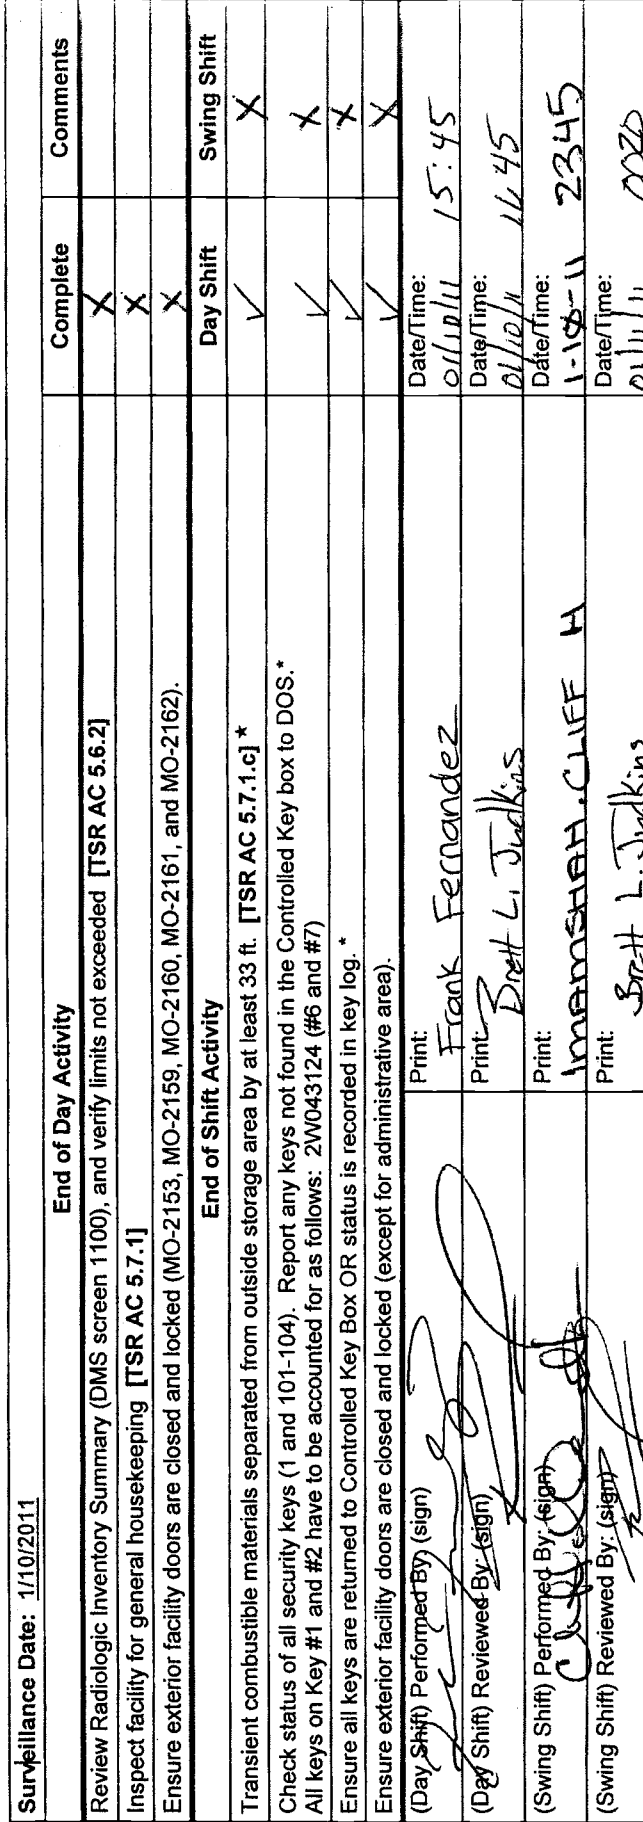 Surveillance Date: 1/10/2011
End of Day Activity Complete Comments
Review Radiologic Inventory Summary (DMS screen 1100), and verify limits not exceeded [TSR AC 5.6.2] X
Inspect facility for general housekeeping [TSR AC 5.7.1] X
Ensure exterior facility doors are closed and locked (MO-2153, MO-2159, MO-2160, MO-2161, and MO-2162). X
End of Shift Activity Day Shift Swing Shift
Transient combustible materials separated from outside storage area by at least 33 ft. [TSR AC 5.7.1.c] * ✓ X
Check status of all security keys (1 and 101-104). Report any keys not found in the Controlled Key box to DOS.*
All keys on Key #1 and #2 have to be accounted for as follows: 2W043124 (#6 and #7) ✓ X
Ensure all keys are returned to Controlled Key Box OR status is recorded in key log. * ✓ X
Ensure exterior facility doors are closed and locked (except for administrative area). ✓ X
(Day Shift) Performed By: (sign) Print: Date/Time:
Frank Fernandez 01/10/11 15:45
(Day Shift) Reviewed By: (sign) Print: Date/Time:
Brett L. Judkins 01/10/11 1645
(Swing Shift) Performed By: (sign) Print: Date/Time:
IMAMSHAH, CLIFF H 1-10-11 2345
(Swing Shift) Reviewed By: (sign) Print: Date/Time:
Brett L. Judkins 01/11/11 0020